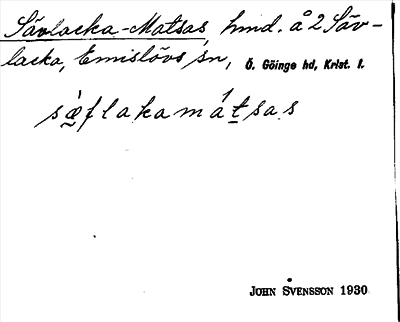 Sävlacka-Matsas, hmd. å 2 Säv-
lacka, Emislövs sn, Ö. Göinge hd, Krist. l.
sæ̀flakamátsas
JOHN SVENSSON 1930